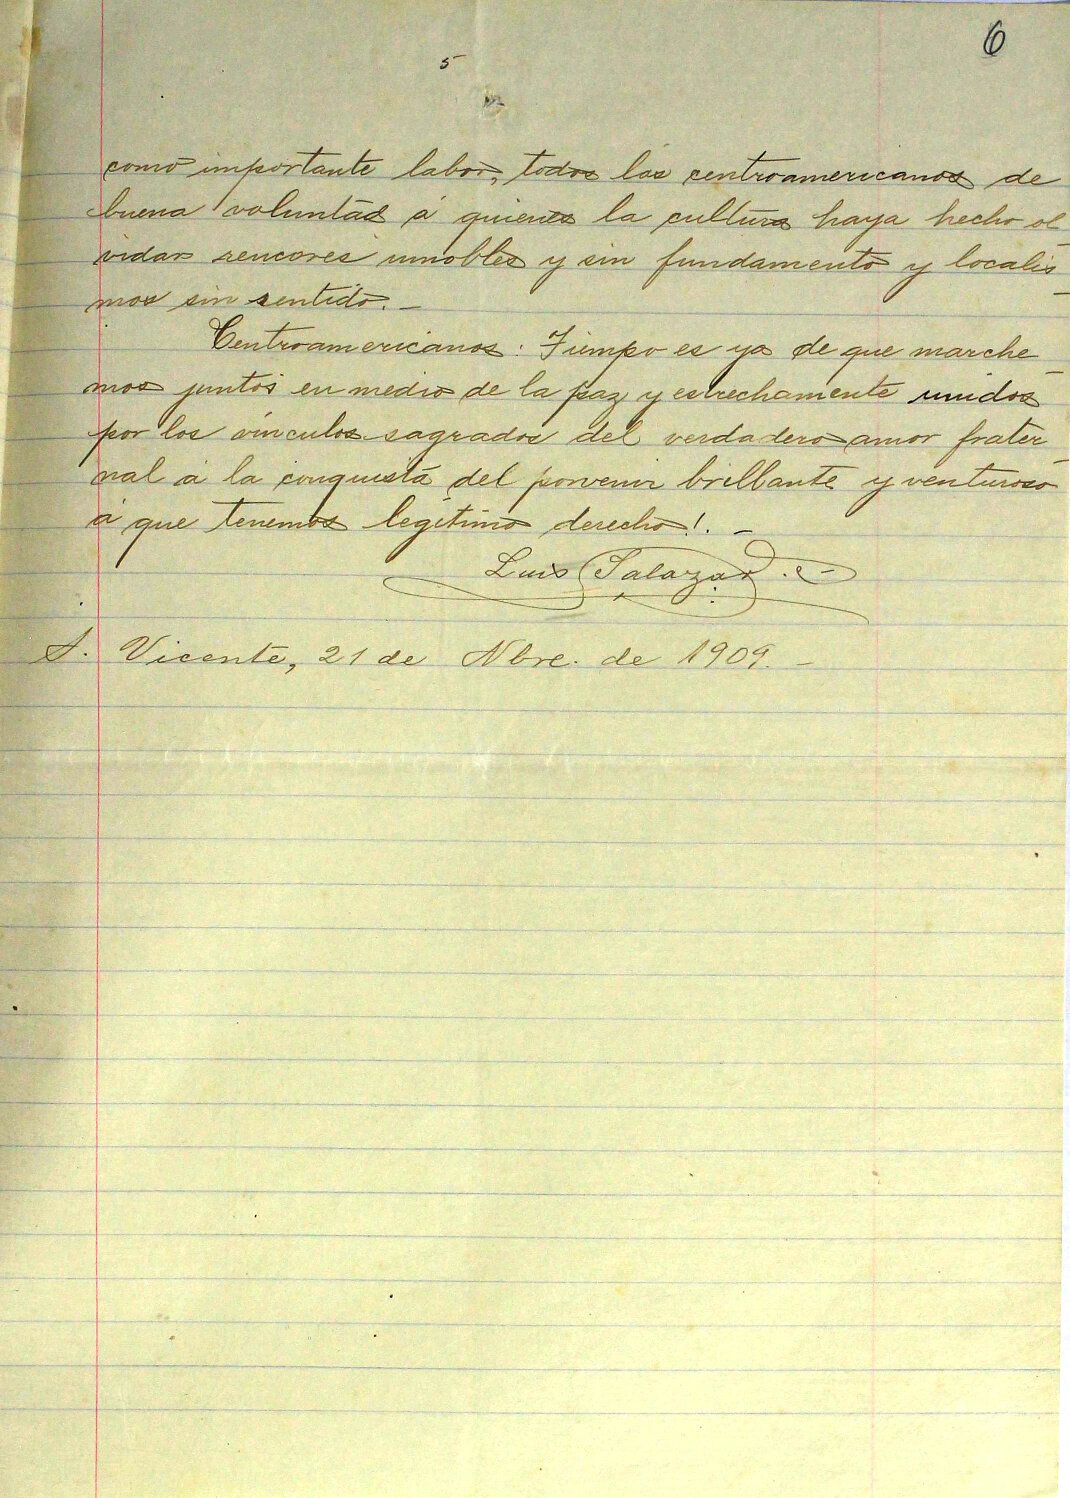 6
5
como importante labor, todos los centroamericanos de
buena voluntad á quienes la cultura haya hecho ol
vidar rencores innobles y sin fundamento y localis
mos sin sentido. —
Centroamericanos: Tiempo es ya de que marche
mos juntos en medio de la paz y estrechamente unidos
por los vínculos sagrados del verdadero amor frater
nal á la conquista del porvenir brillante y venturoso
á que tenemos legítimo derecho!. —
Luis Salazar
S. Vicente, 21 de Nbre. de 1909. —